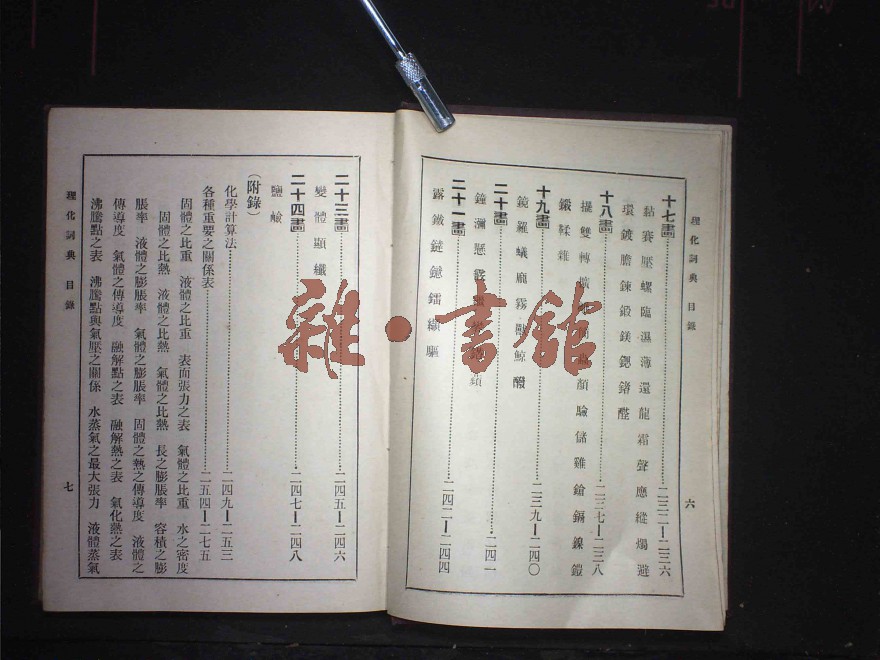 理化詞典 目錄
六
十七畫 二三二—二三六
黏賽壓螺臨濕薄還龍霜聲應縱燭避
環鍍膽鍊鍛鎂鍶鍺醛
十八畫 二三七—二三八
擺雙轉 顏驗儲雞鎗鎘鎳鎧
鍛鞣雜
十九畫 二三九—二四〇
鏡羅蟻龐霧 鯨醱
二十畫 二四一
鐘瀰懸
二十一畫 二四二—二四四
露鐵 鐳纈驅
二十三畫 二四五—二四六
變體顯纖
二十四畫 二四七—二四八
鹽鹼
(附錄)
化學計算法 二四九—二五三
各種重要之關係表 二五四—二七五
固體之比重 液體之比重 表面張力之表 氣體之比重 水之密度
固體之比熱 液體之比熱 氣體之比熱 長之膨脹率 容積之膨
脹率 液體之膨脹率 氣體之膨脹率 固體之熱之傳導度 液體之
傳導度 氣體之傳導度 融解點之表 融解熱之表 氣化熱之表
沸騰點之表 沸騰點與氣壓之關係 水蒸氣之最大張力 液體蒸氣
理化詞典 目錄
七
雜·書館